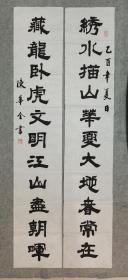 乙酉年夏日
綉水描山華夏大地春常在
藏龍卧虎文明江山盡朝暉
華全書